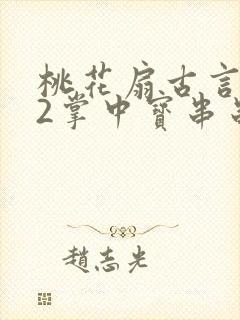 桃花扇古言
2掌中寶串
趙志光